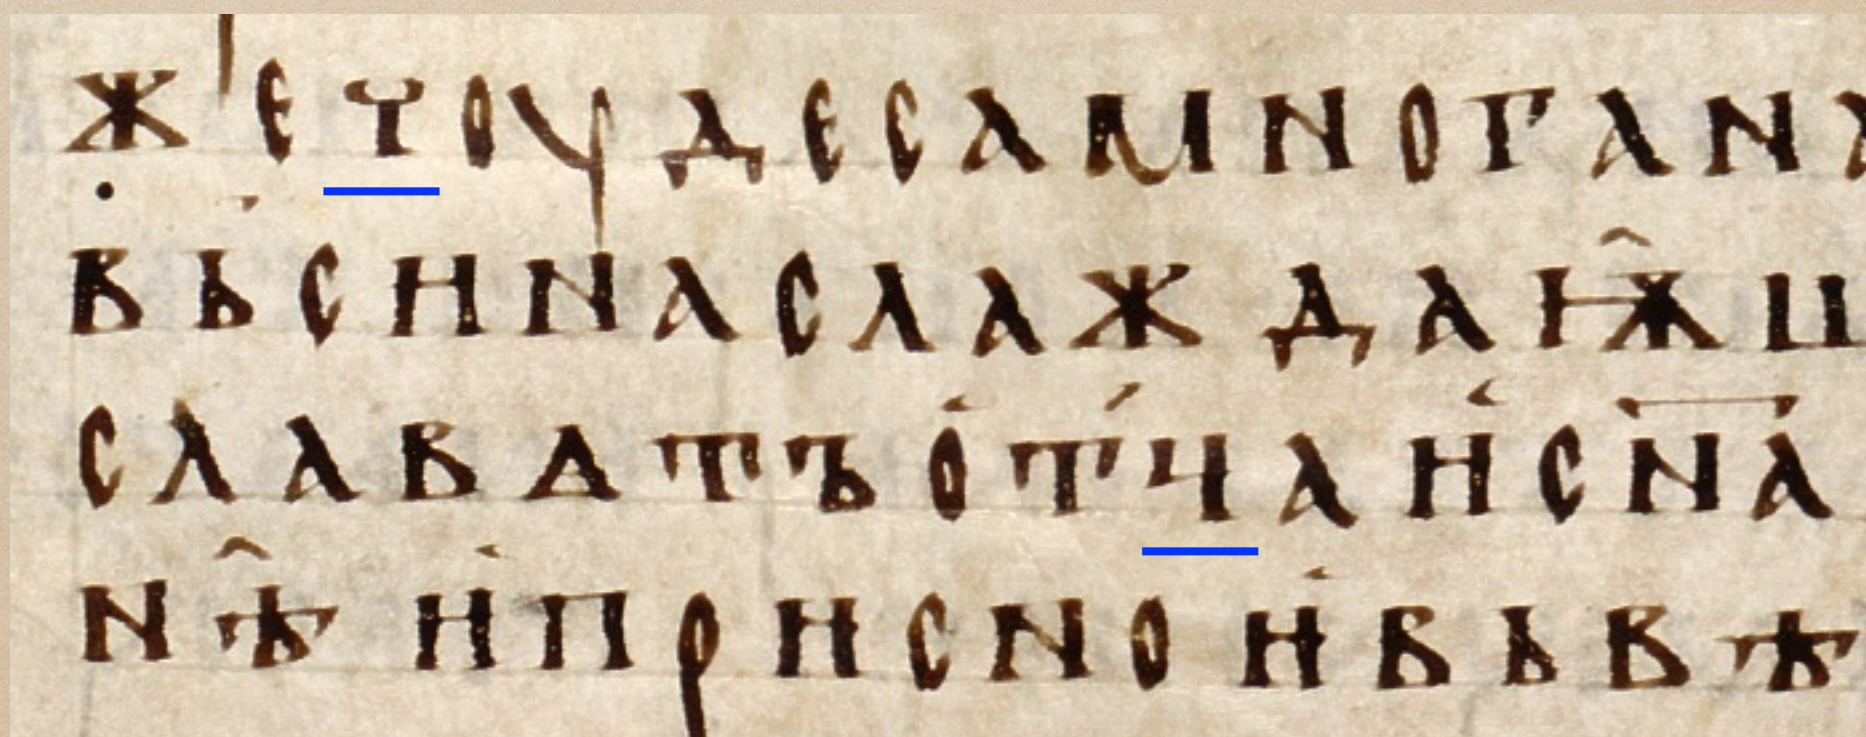 жеѵоудесамногана
вьсинаслаждаѭ
славѧтъо́т́чаи́сн҃а
нѣ̑и́присноивьвѣ